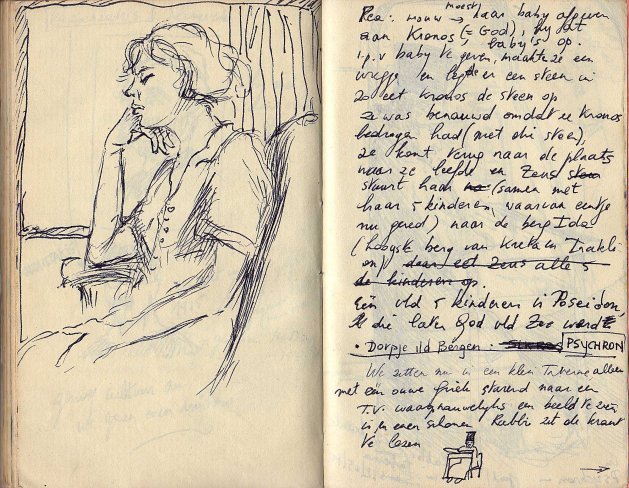 Rea: vrouw → moest haar baby afgeven
aan Kronos (= God), hij at
baby's op.
i.p.v baby te geven, maakte ze een
wiegje en legde er een steen in
Zo eet Kronos de steen op
Ze was benauwd omdat ze Kronos
bedrogen had (met die steen),
ze komt terug naar de plaats
naar ze leefde en Zeus
stuurt haar (samen met
haar 5 kinderen, waarvan eentje
nu gered) naar de berg Ida
(hoogste berg van Kreta in Irakli-
on)/ daar eet Zeus alle 5
de kinderen op.
Eén vld 5 kinderen is Poseidon,
die later God vld Zee werd
• Dorpje i/d Bergen: PSYCHRON
We zitten nu in een klein Taverne alleen
met een ouwe Griek starend naar een
T.V. waarop nauwelijks een beeld te zien
is en even schoner Rabbi zit de krant
te lezen
→